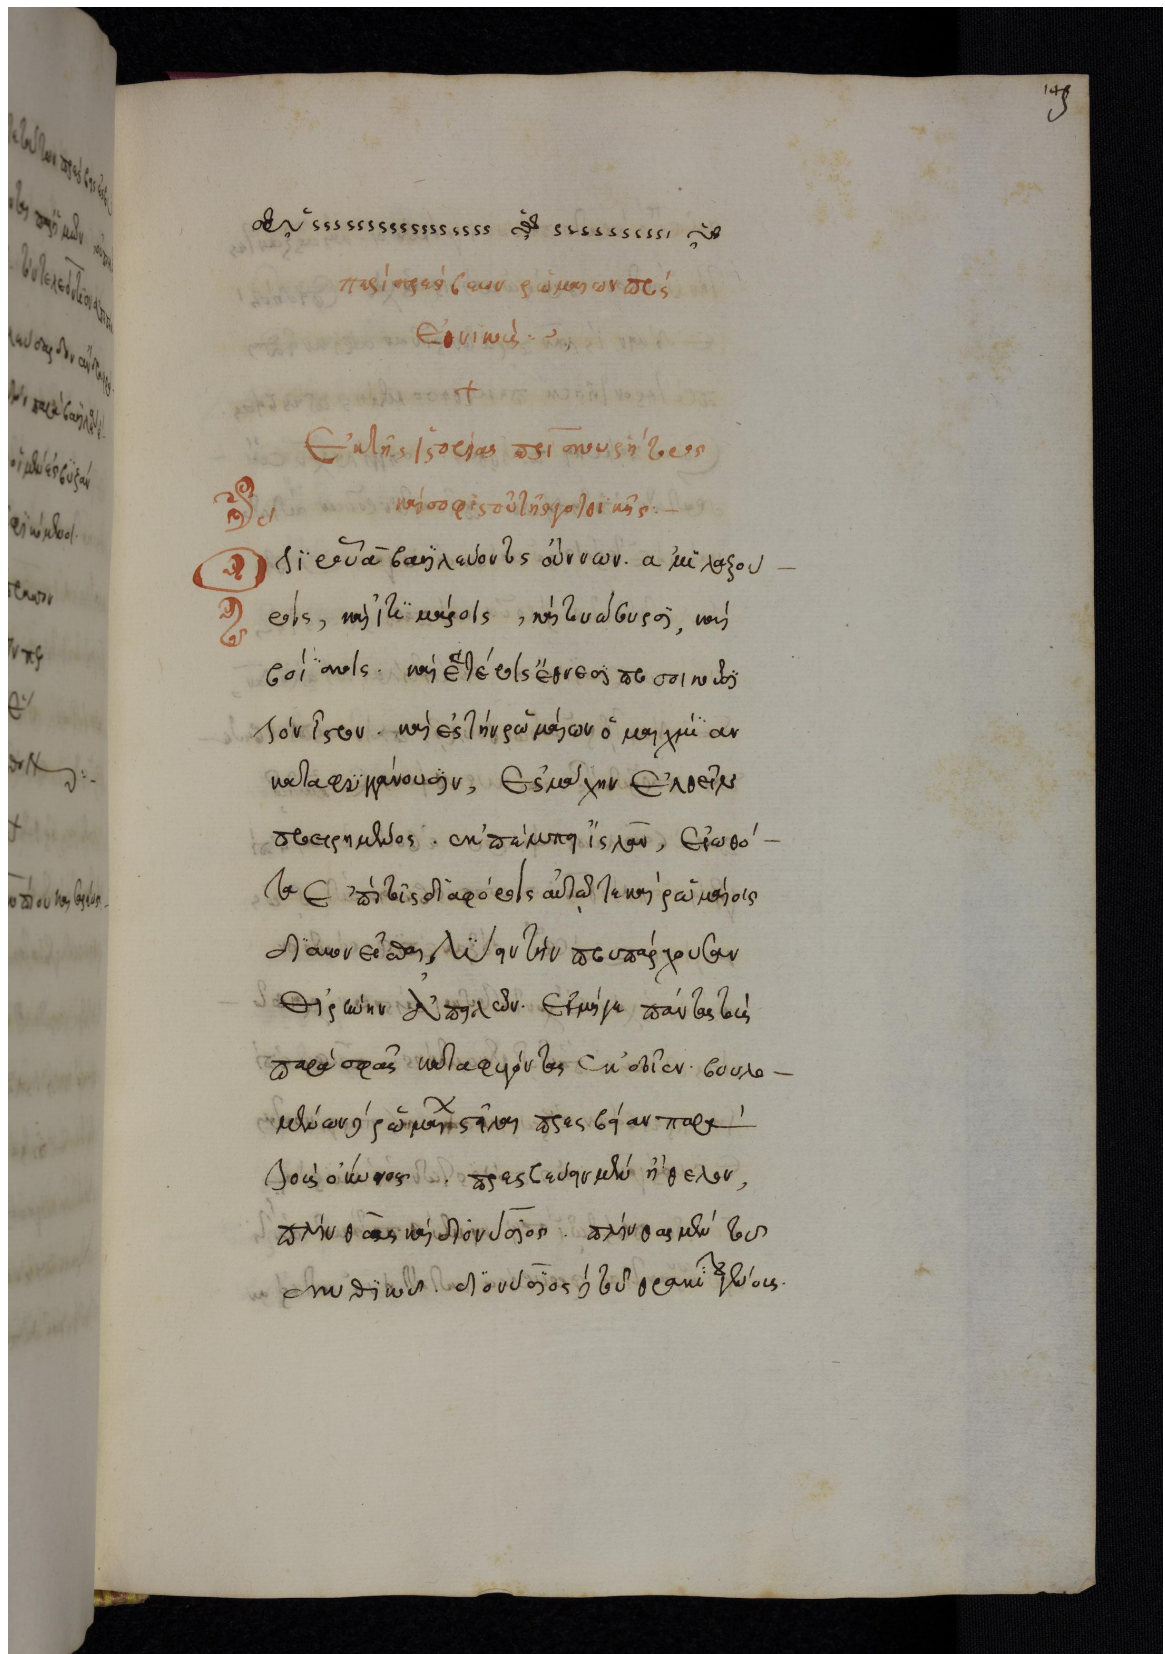 περὶ πρέσβεων ῥωμαίων πρὸς
ἐθνικούς
ἐκ τῆς ἱστορίας πρίσκου ῥήτορος
καὶ σοφιστοῦ τῆς γοτθικῆς.
ὅτι ῥοῦα βασιλεύοντος οὔννων. ἀμιλζού
ροις, καὶ ἰτιμάροις, καὶ τονώσουρσι, καὶ
βοΐσκοις. καὶ ἑτέροις ἔθνεσι προσοικοῦσι
τὸν ἴστρον. καὶ ἐς τὴν ῥωμαίων ὁμαιχμίαν
καταφυγγάνουσιν, ἐς μάχην ἐλθεῖν
προειρημένος. ἐκπέμπει ἴσλαν, εἰωθό
τα ἐπὶ τοῖς διαφόροις αὐτῷ τε καὶ ῥωμαίοις
διακονεῖσθαι, λύειν τὴν προυπάρχουσαν
εἰρήνην ἀπειλῶν. εἰ μή γε πάντας τοὺς
παρὰ σφᾶς καταφυγόντας ἐκδοῖεν. βουλο
μένων δὲ ῥωμαίων στεῖλαι πρεσβείαν παρὰ
τοὺς οὔννους. πρεσβεύειν μὲν ἤθελον,
πλίνθας καὶ διονύσιος. πλίνθας μὲν τοῦ
σκυθικοῦ. διονύσιος δὲ τοῦ θρακίου γένους.